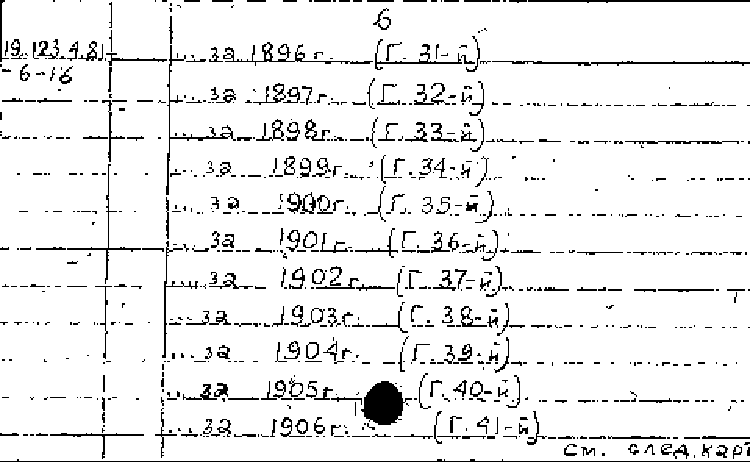 6
19.123.4.81-
-6-16
... за 1896 г. (Г. 31-й)
... за 1897 г. (Г. 32-й)
... за 1898 г. (Г. 33-й)
... за 1899 г. (Г. 34-й)
... за 1900 г. (Г. 35-й)
... за 1901 г. (Г. 36-й)
... за 1902 г. (Г. 37-й)
... за 1903 г. (Г. 38-й)
... за 1904 г. (Г. 39-й)
... за 1905 г. (Г. 40-й)
... за 1906 г. (Г. 41-й)
см. след. карт